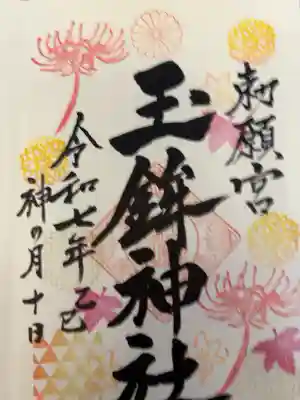 勅願宮
玉鉾神社
令和七年乙巳
神の月十日